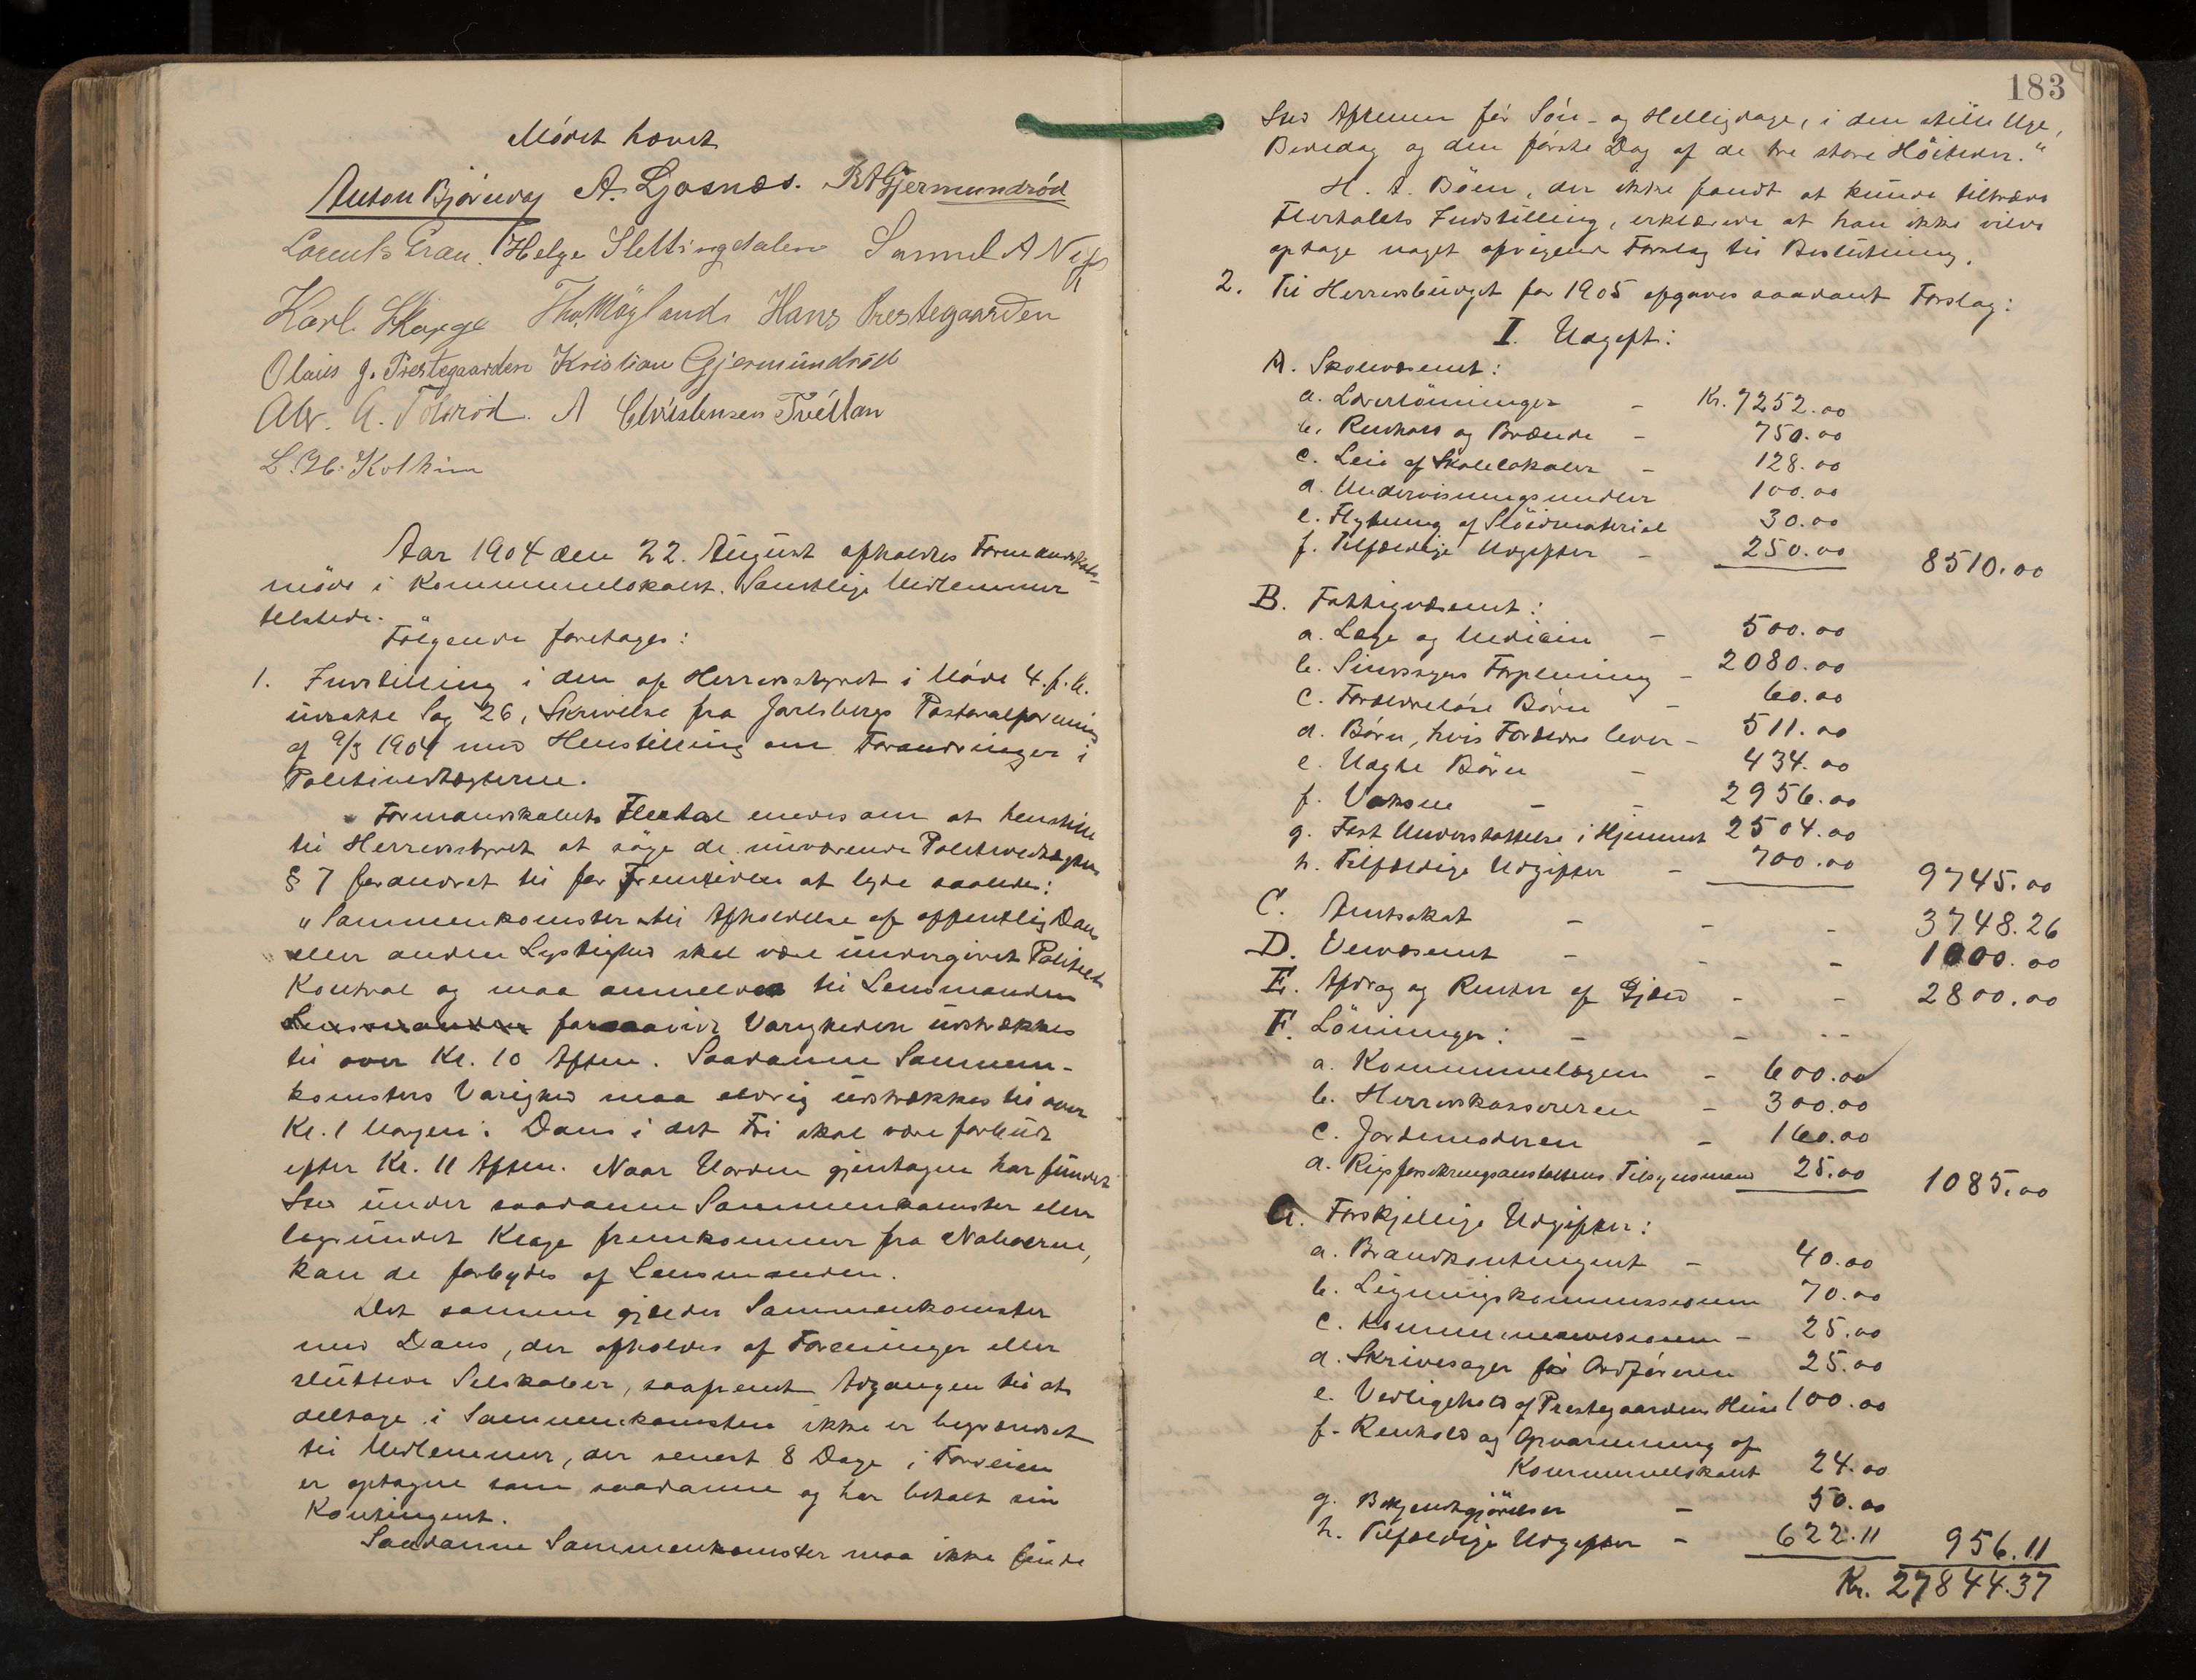 Mödet hævet
Anton Björnvag A. Ljosnes. R A Gjermundröd
Lorents Gran. Helge Slettingdalen Samuel A Nes
Karl Skarge Th. Möyland Hans Prestegaarden
Olaus J. Prestegaarden Kristian Gjermundröd
Alv. A. Tolsröd. A Christensen Tveitan
L. H. Kolkinn
Aar 1904 den 22. August afholdtes Formandskabs-
möde i Kommunelokalet. Samtlige Medlemmer
tilstede.
Fölgende foretoges:
1. Indstilling i den af Herredsstyret i Möde 4. f. M.
udsatte Sag 26, Skrivelse fra Jarlsbergs Pastoralforening
af 9/3 1904 med Henstilling om Forandringer i
Politivedtægterne.
Formandskabets Flertal enedes om at henstille
til Herredsstyret at söge de nuværende Politivedtægters
§ 7 forandret til for Fremtiden at lyde saaledes:
"Sammenkomster til Afholdelse af offentlig Dans
eller anden Lystighed skal være undergivet Politiets
Kontrol og maa anmeldes til Lensmanden
Lensmanden forsaavidt Varigheden udstrækkes
til over Kl. 10 Aften. Saadanne Sammen-
komsters Varighed maa aldrig udstrækkes til over
Kl. 1 Morgen. Dans i det Fri skal være forbudt
efter Kl. 11 Aften. Naar Uorden gjentagen har fundet
Sted under saadanne Sammenkomster eller
begrundet Klage fremkommer fra Naboerne,
kan de forbydes af Lensmanden.
Det samme gjælder Sammenkomster
med Dans, der afholdes af Foreninger eller
sluttede Selskaber, saafremt Adgangen til at
deltage i Sammenkomsten ikke er begrændset
til Medlemmer, der senest 8 Dage i Forveien
er optagne som saadanne og har betalt sin
Kontingent.
Saadanne Sammenkomster maa ikke finde
183
Sted Aftenen för Sön- og Helligdage, i den stille Uge,
Bededag og den förste Dag af de tre store Höitider."
H. A. Böen, der ikke fandt at kunde tiltræde
Flertallets Indstilling, erklærede at han ikke vilde
optage noget afvigende Forslag til Beslutning.
2. Til Herredsbudget for 1905 afgaves saadant Forslag:
I. Udgift:
A. Skolevæsenet:
a. Lærerlönninger - Kr. 7252.00
b. Renhold og Brænde - 750.00
c. Leie af Skolelokaler - 128.00
d. Undervisningsmidler 100.00
e. Flytning af Slöidmateriel 30.00
f. Tilfældige Udgifter - 250.00 8510.00
B. Fattigvæsenet:
a. Læge og Medicin - 500.00
b. Sindssyges Forpleining - 2080.00
c. Forældrelöse Börn - 60.00
d. Börn, hvis Forældre lever - 511.00
e. Uægte Börn - 434.00
f. Voksne - - 2956.00
g. Fast Understøttelse i Hjemmet 2504.00
h. Tilfældige Udgifter - 700.00 9745.00
C. Amtsskat - - - 3748.26
D. Veivæsenet - - - 1000.00
E. Afdrag og Renter af Gjæld - - 2800.00
F. Lönninger: - - --
a. Kommunelægen - 600.00
b. Herredskassereren - 300.00
c. Jordemoderen - 160.00
d. Rigsforsikringsanstaltens Tilsynsmand 25.00 1085.00
G. Forskjellige Udgifter:
a. Brandkontingent - 40.00
b. Ligningskommissionen 70.00
c. Kommunerevisionen - 25.00
d. Skrivesager for Ordföreren 25.00
e. Vedligehold af Prestegaardens Huse 100.00
f. Renhold og Opvarmning af
Kommunelokalet 24.00
g. Bekjendtgjörelser - 50.00
h. Tilfældige Udgifter - 622.11 956.11
Kr. 27844.37